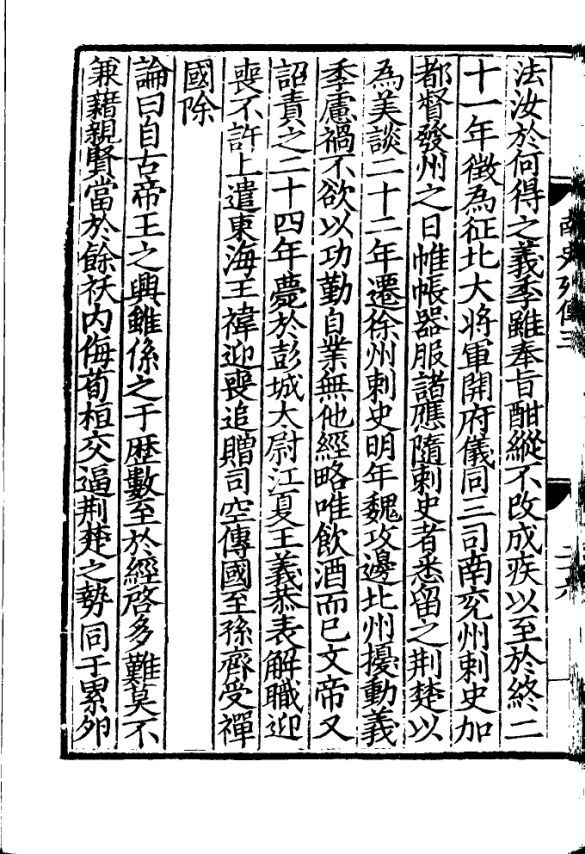 法汝於何得之義季雖奉旨酣縱不改成疾以至於終二
十一年徵為征北大將軍開府儀同三司南兖州刺史加
都督發州之日帷帳器服諸應隨刺史者悉留之荆楚以
為美談二十二年遷徐州刺史明年魏攻邊北州擾動義
季慮禍不欲以功勤自業無他經略唯飲酒而已文帝又
詔責之二十四年薨於彭城太尉江夏王義恭表解職迎
喪不許上遣東海王禕迎喪追贈司空傳國至孫齊受禪
國除
論曰自古帝王之興雖係之于歷數至於經啓多難莫不
兼藉親賢當於餘祅内侮荀桓交逼荆楚之勢同于累夘